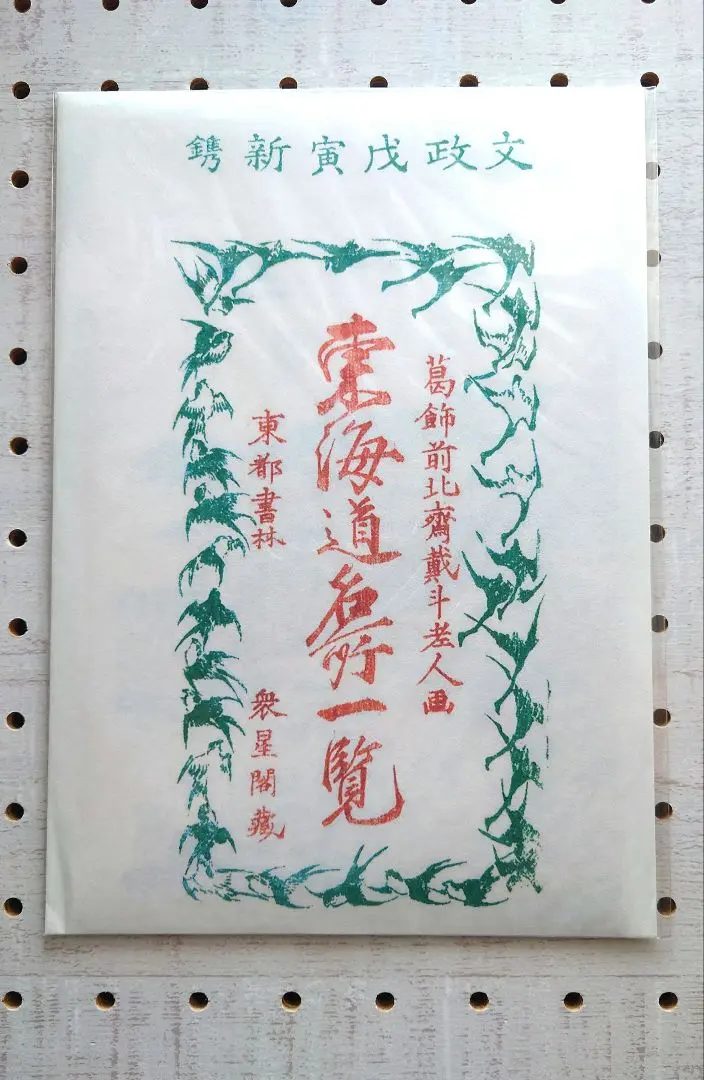 文政戊寅新鐫
葛飾前北齋戴斗老人画
東海道名所一覽
東都書林
衆星閣藏